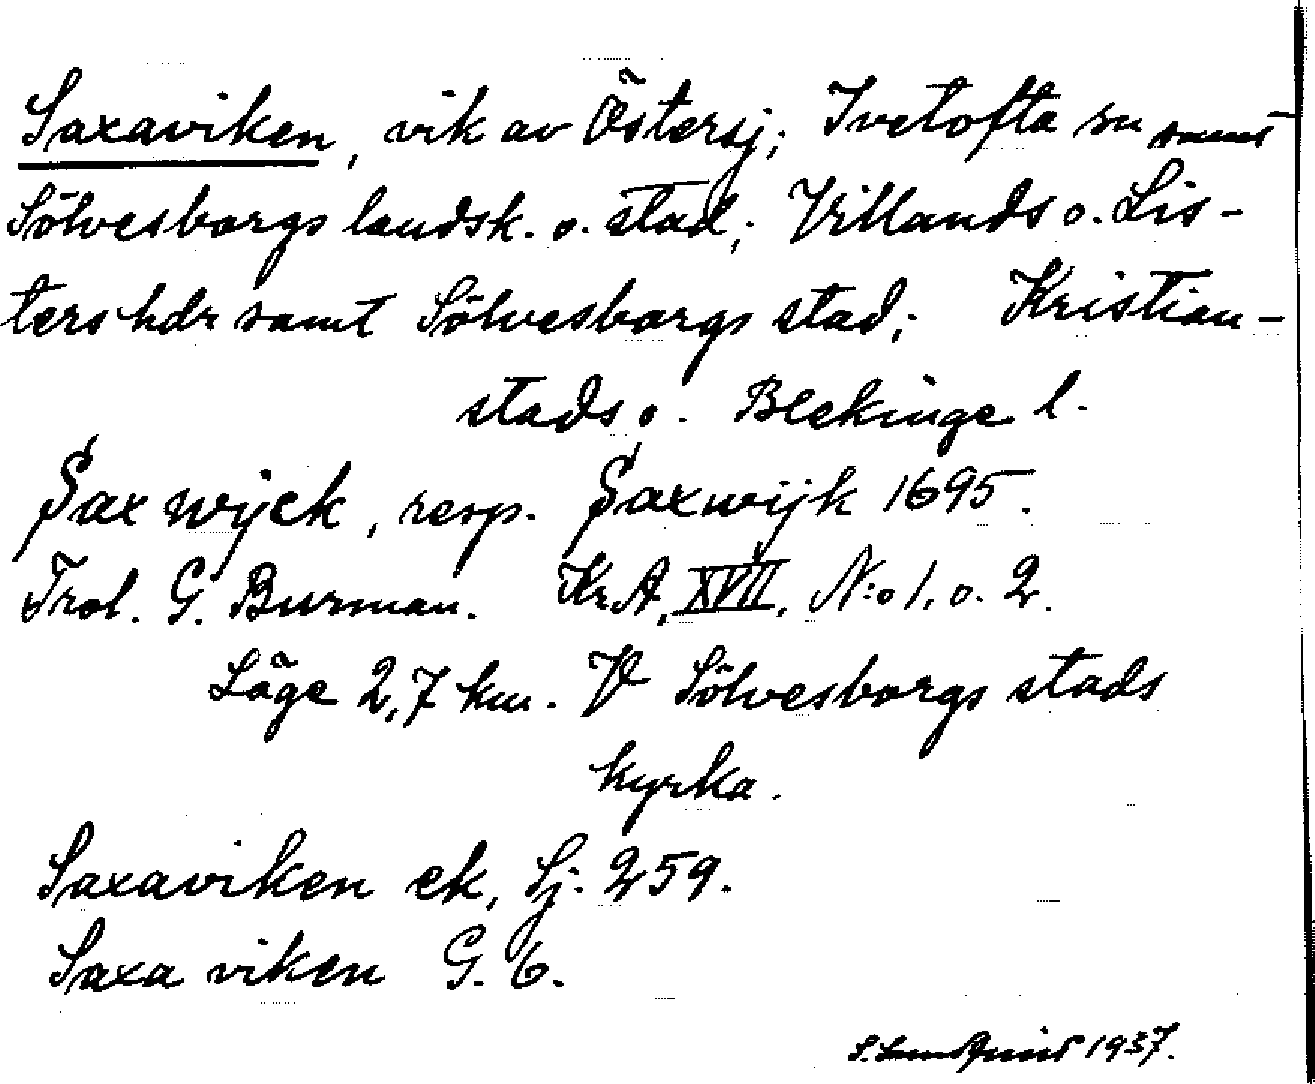 Saxaviken, vik av Östersj; Ivetofta sn samt
Sölvesborgs landsk. o. stad; Villands o. Lis-
ters hdr samt Sölvesborgs stad; Kristian-
stads o. Blekinge l.
Saxwijck, resp. Saxwijk 1695.
Trol. G. Burman. Kr.A, XVII, N:o 1, o. 2.
Läge 2,7 km. V Sölvesborgs stads
kyrka.
Saxaviken ek, Sj. 259.
Saxa viken G. 6.
S. Lundquist 1937.